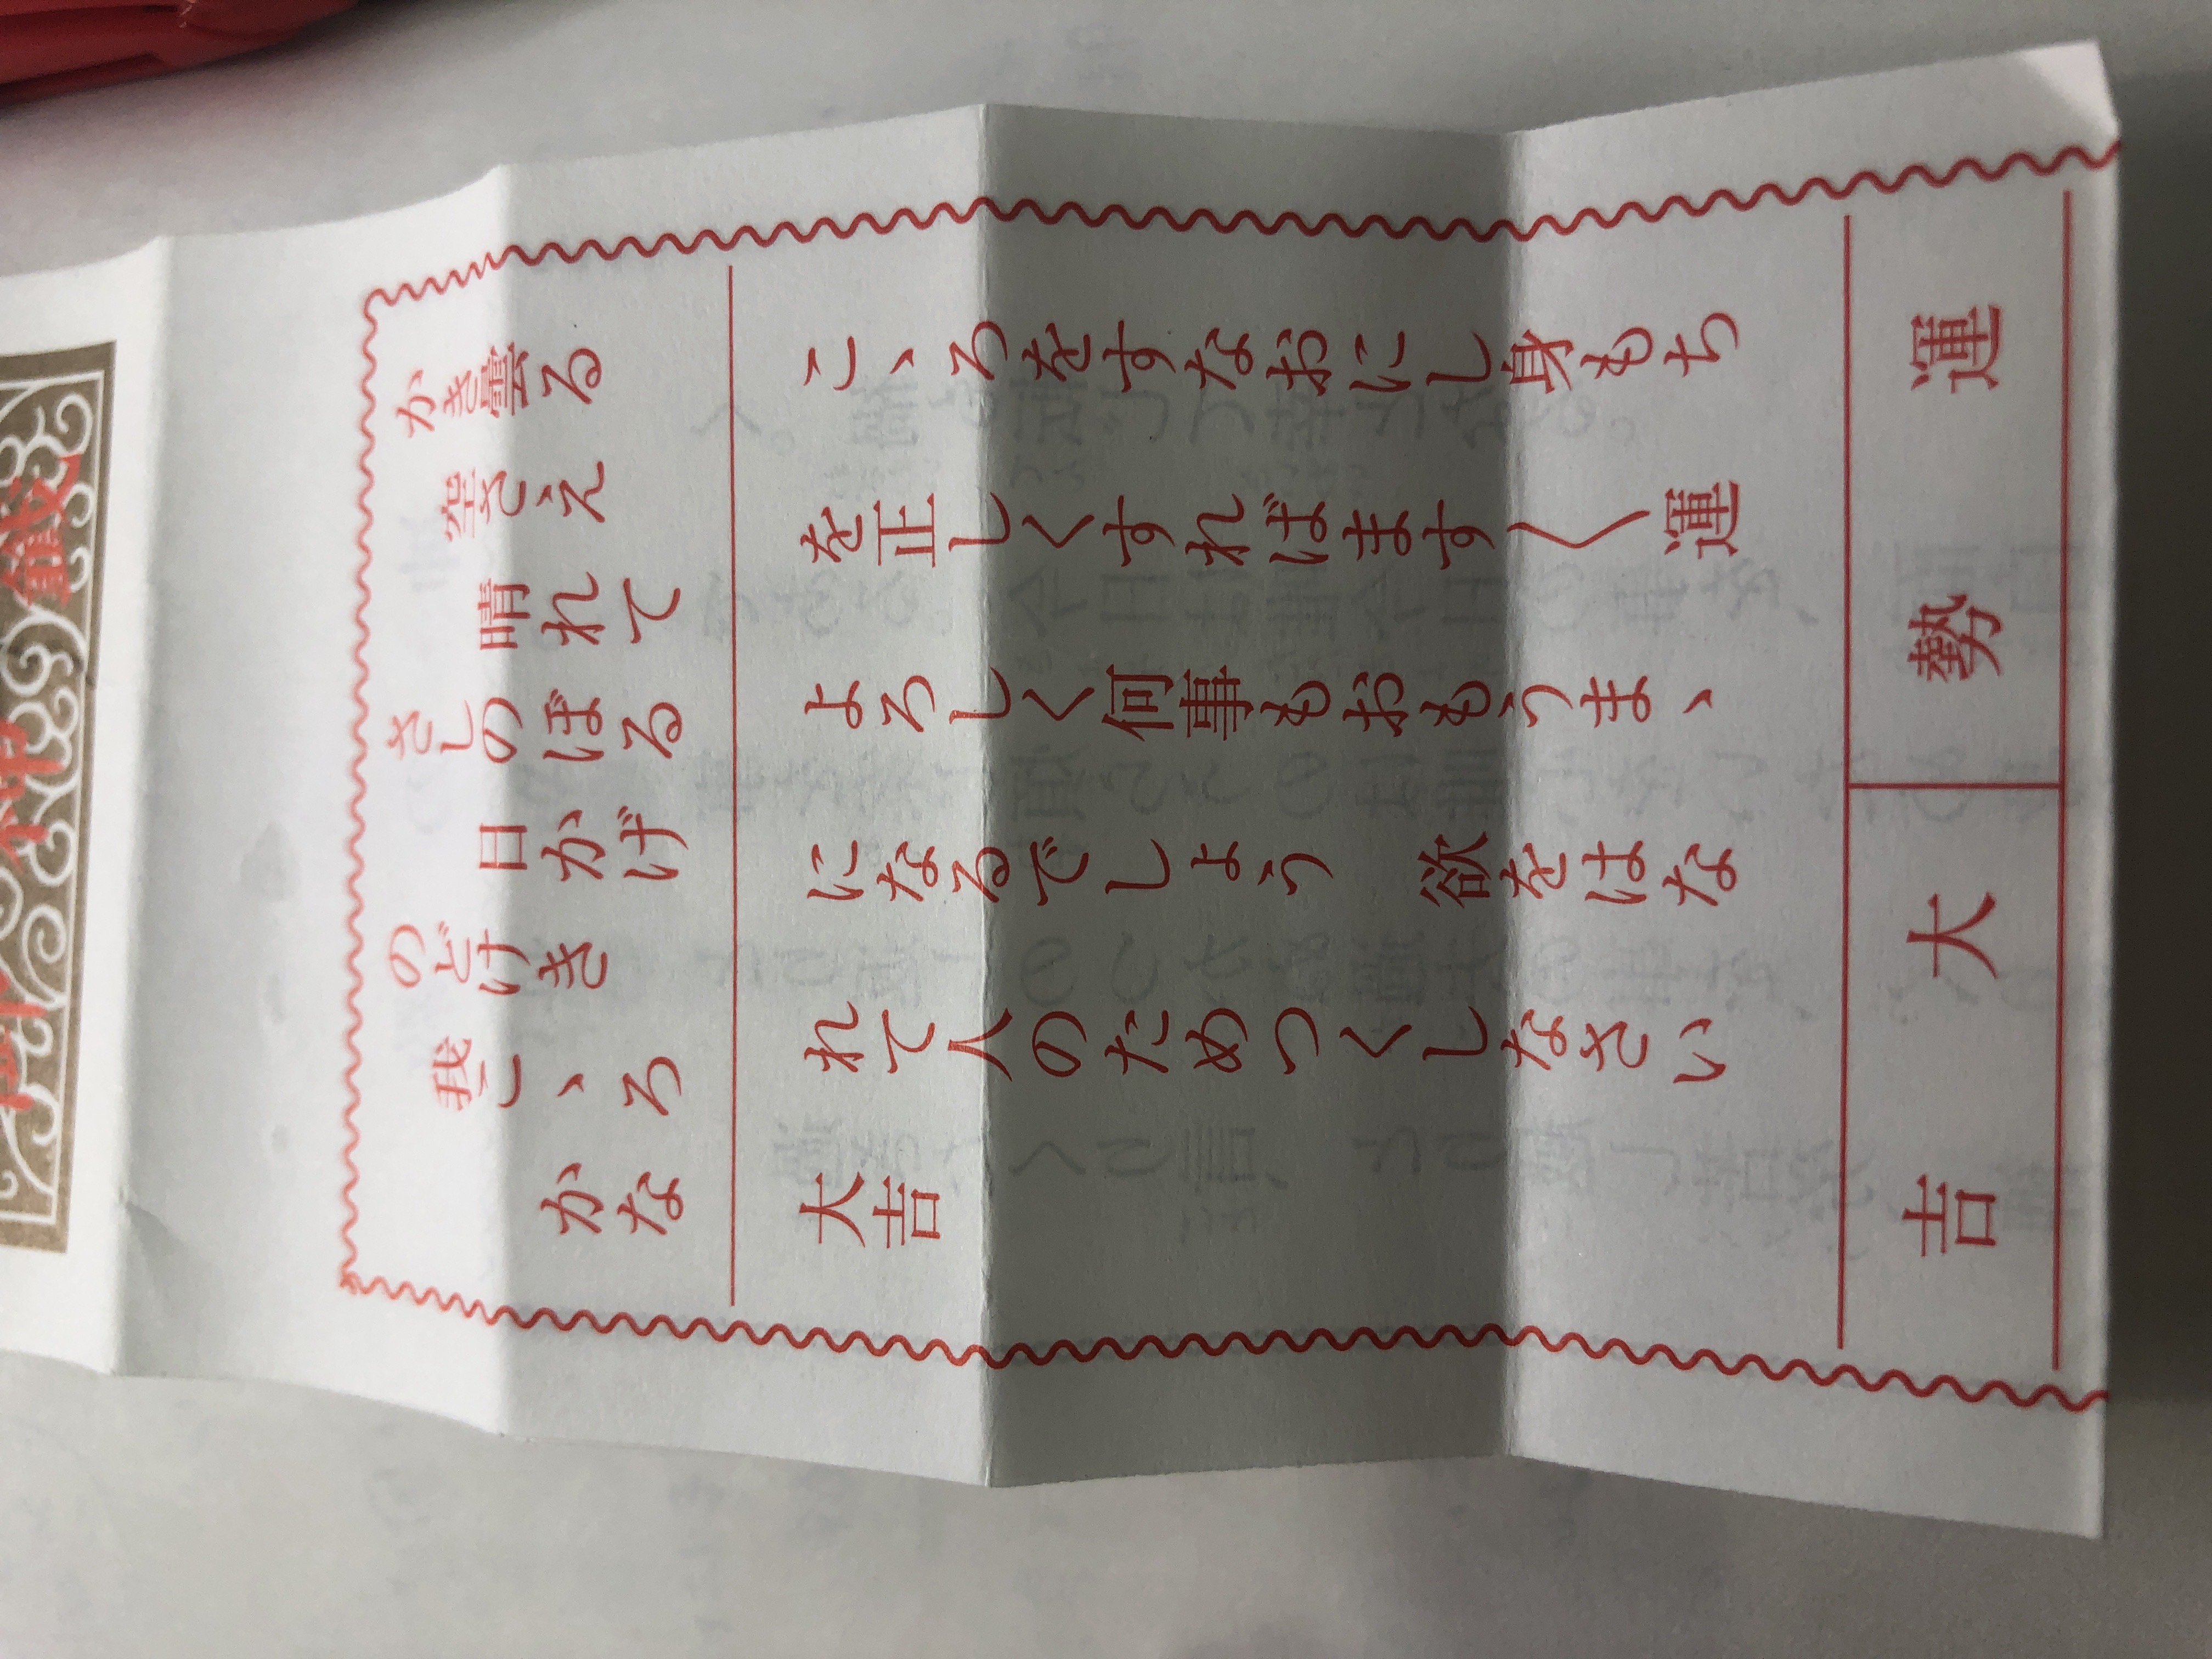 かき曇る
空さえ
晴れて
さしのぼる
日かげ
のどけき
我こゝろ
かな
こゝろをすなおにし身もち
を正しくすればます〱運
よろしく何事もおもうまゝ
になるでしよう 欲をはな
れて人のためつくしなさい
大吉
運勢 大吉